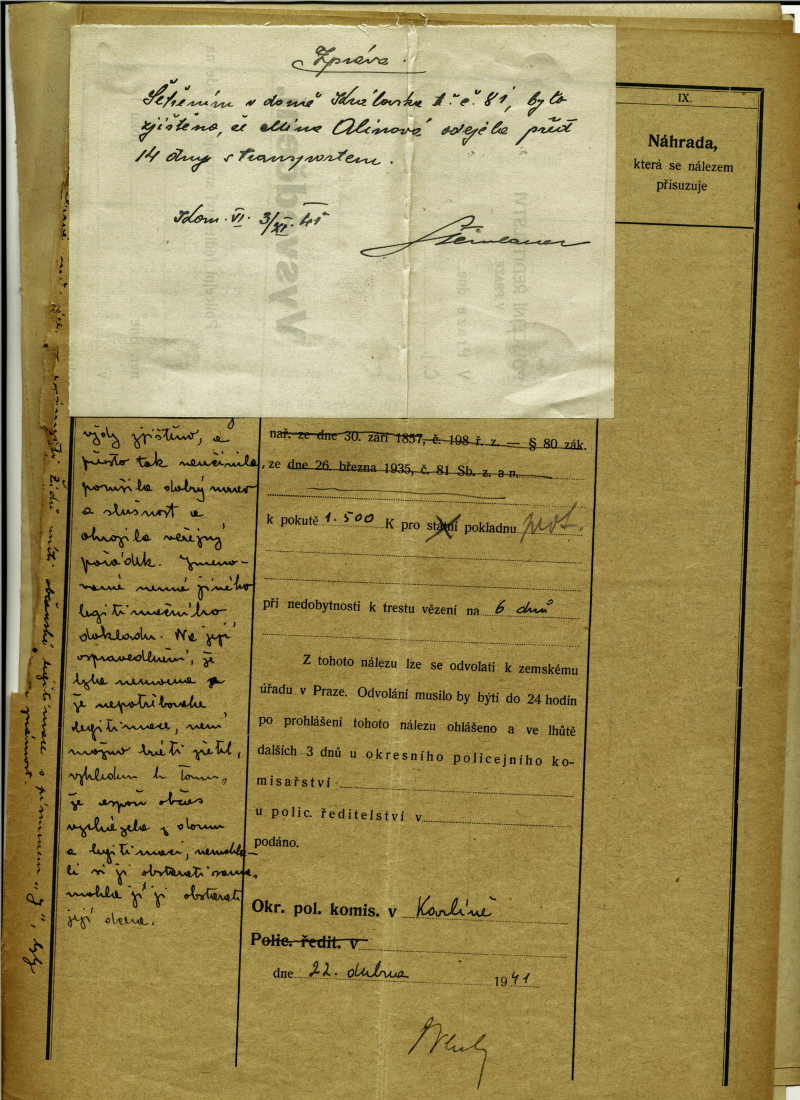 Zpráva.
Šetřením v domě Královska tř. č. 81, bylo
zjištěno, že Mina Alinová odejela před
14 dny s transportem.
Kom. VI. 3/XI. 41
IX.
Náhrada,
která se nálezem
přisuzuje
vždy zjištěno, a
přesto tak neučinila,
porušila dobrý mrav
a slušnost a
ohrozila veřejný
pořádek. Jmeno-
vaná nemá jiného
legitimačního
dokladu. Na její
ospravedlnění, že
byla nemocna a
že nepotřebovala
legitimace, není
možno bráti zřetel,
vzhledem k tomu,
že aspoň občas
vycházela z domu
a legitimaci, nemohla-
li si ji obstarati sama,
mohla jí ji obstarati
její dcera.
nař. ze dne 30. září 1857, č. 198 ř. z. — § 80 zák.
ze dne 26. března 1935, č. 81 Sb. z. a n.
k pokutě 1.500 K pro státní pokladnu prot.
při nedobytnosti k trestu vězení na 6 dnů
Z tohoto nálezu lze se odvolati k zemskému
úřadu v Praze. Odvolání musilo by býti do 24 hodin
po prohlášení tohoto nálezu ohlášeno a ve lhůtě
dalších 3 dnů u okresního policejního ko-
misařství
u polic. ředitelství v
podáno.
Okr. pol. komis. v Karlíně
Polic. ředit. v
dne 22. dubna 1941
židů míti občanské legitimace s písmenem "J", byly
známost.